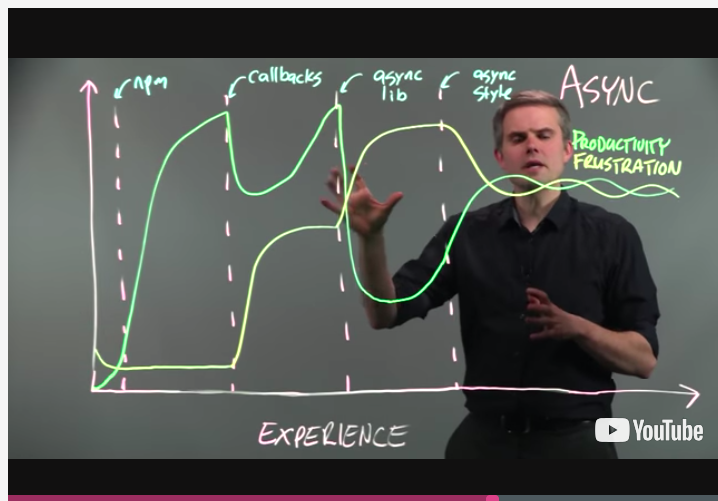 npm
callbacks
async
lib
async
style
ASYNC
PRODUCTIVITY
FRUSTRATION
EXPERIENCE
YouTube